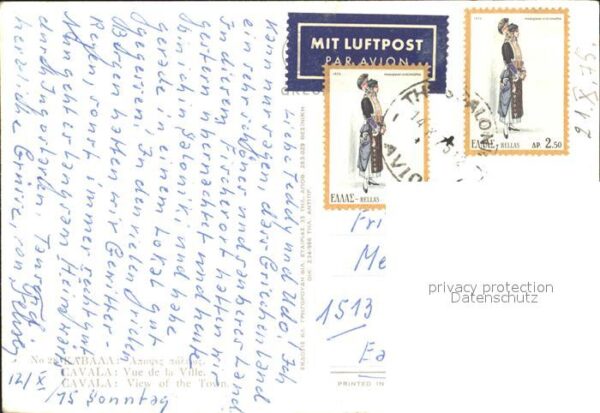 Liebe Teddy und Udo! Ich
kann nur sagen, dass Griechenland
ein sehr schönes und sauberes Land
In diesem Fischerort hatten wir
gestern übernachtet und heute
bin ich in Saloniki und habe
gerade in einem Lokal gut
gegessen. In den vielen
Bergen hatten wir Gewitter-
Regen, sonst immer recht gut
Nun geht es langsam Heimwärts
durch Jugoslavien. Tausend
herzliche Grüsse von
12/X
75 Sonntag
ΚΑΒΑΛΑ: Άποψις πόλεως.
CAVALA: Vue de la Ville.
CAVALA: View of the Town.
MIT LUFTPOST
PAR AVION
ΕΛΛΑΣ-HELLAS
ΕΛΛΑΣ-HELLAS ΔΡ. 2.50
Fri
Me
1513
Ea
PRINTED IN
privacy protection
Datenschutz